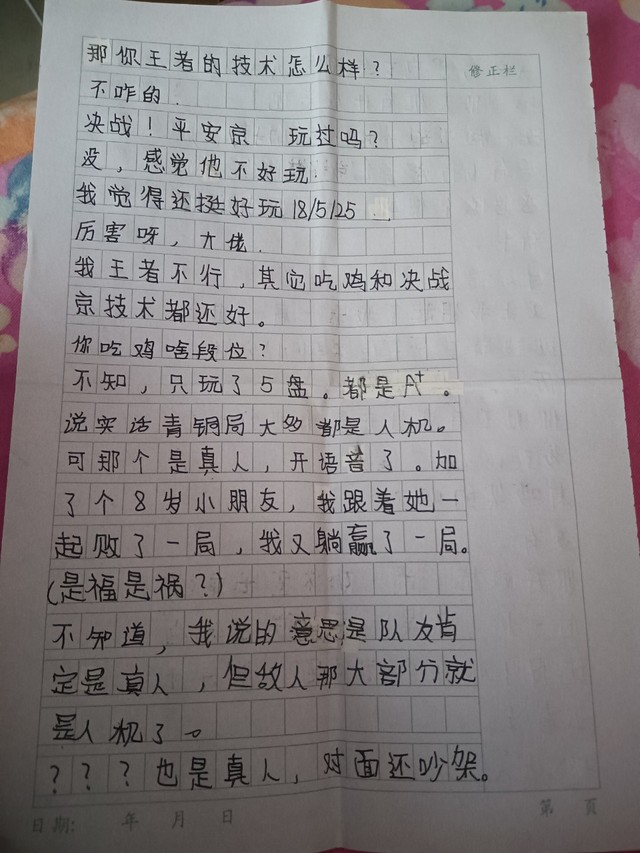 那你王者的技术怎么样？
修正栏
不咋的.
决战！平安京 玩过吗？
没，感觉他不好玩.
我觉得还挺好玩18/5/25
厉害呀，大佬.
我王者不行，其实吃鸡和决战
京技术都还好。
你吃鸡啥段位？
不知，只玩了5盘。都是A+。
说实话青铜局大多都是人机。
可那个是真人，开语音了。加
了个8岁小朋友，我跟着她一
起败了一局，我又躺赢了一局。
(是福是祸？)
不知道，我说的意思是队友肯
定是真人，但敌人那大部分就
是人机了。
？？？也是真人，对面还吵架。
日期: 年 月 日
第 页